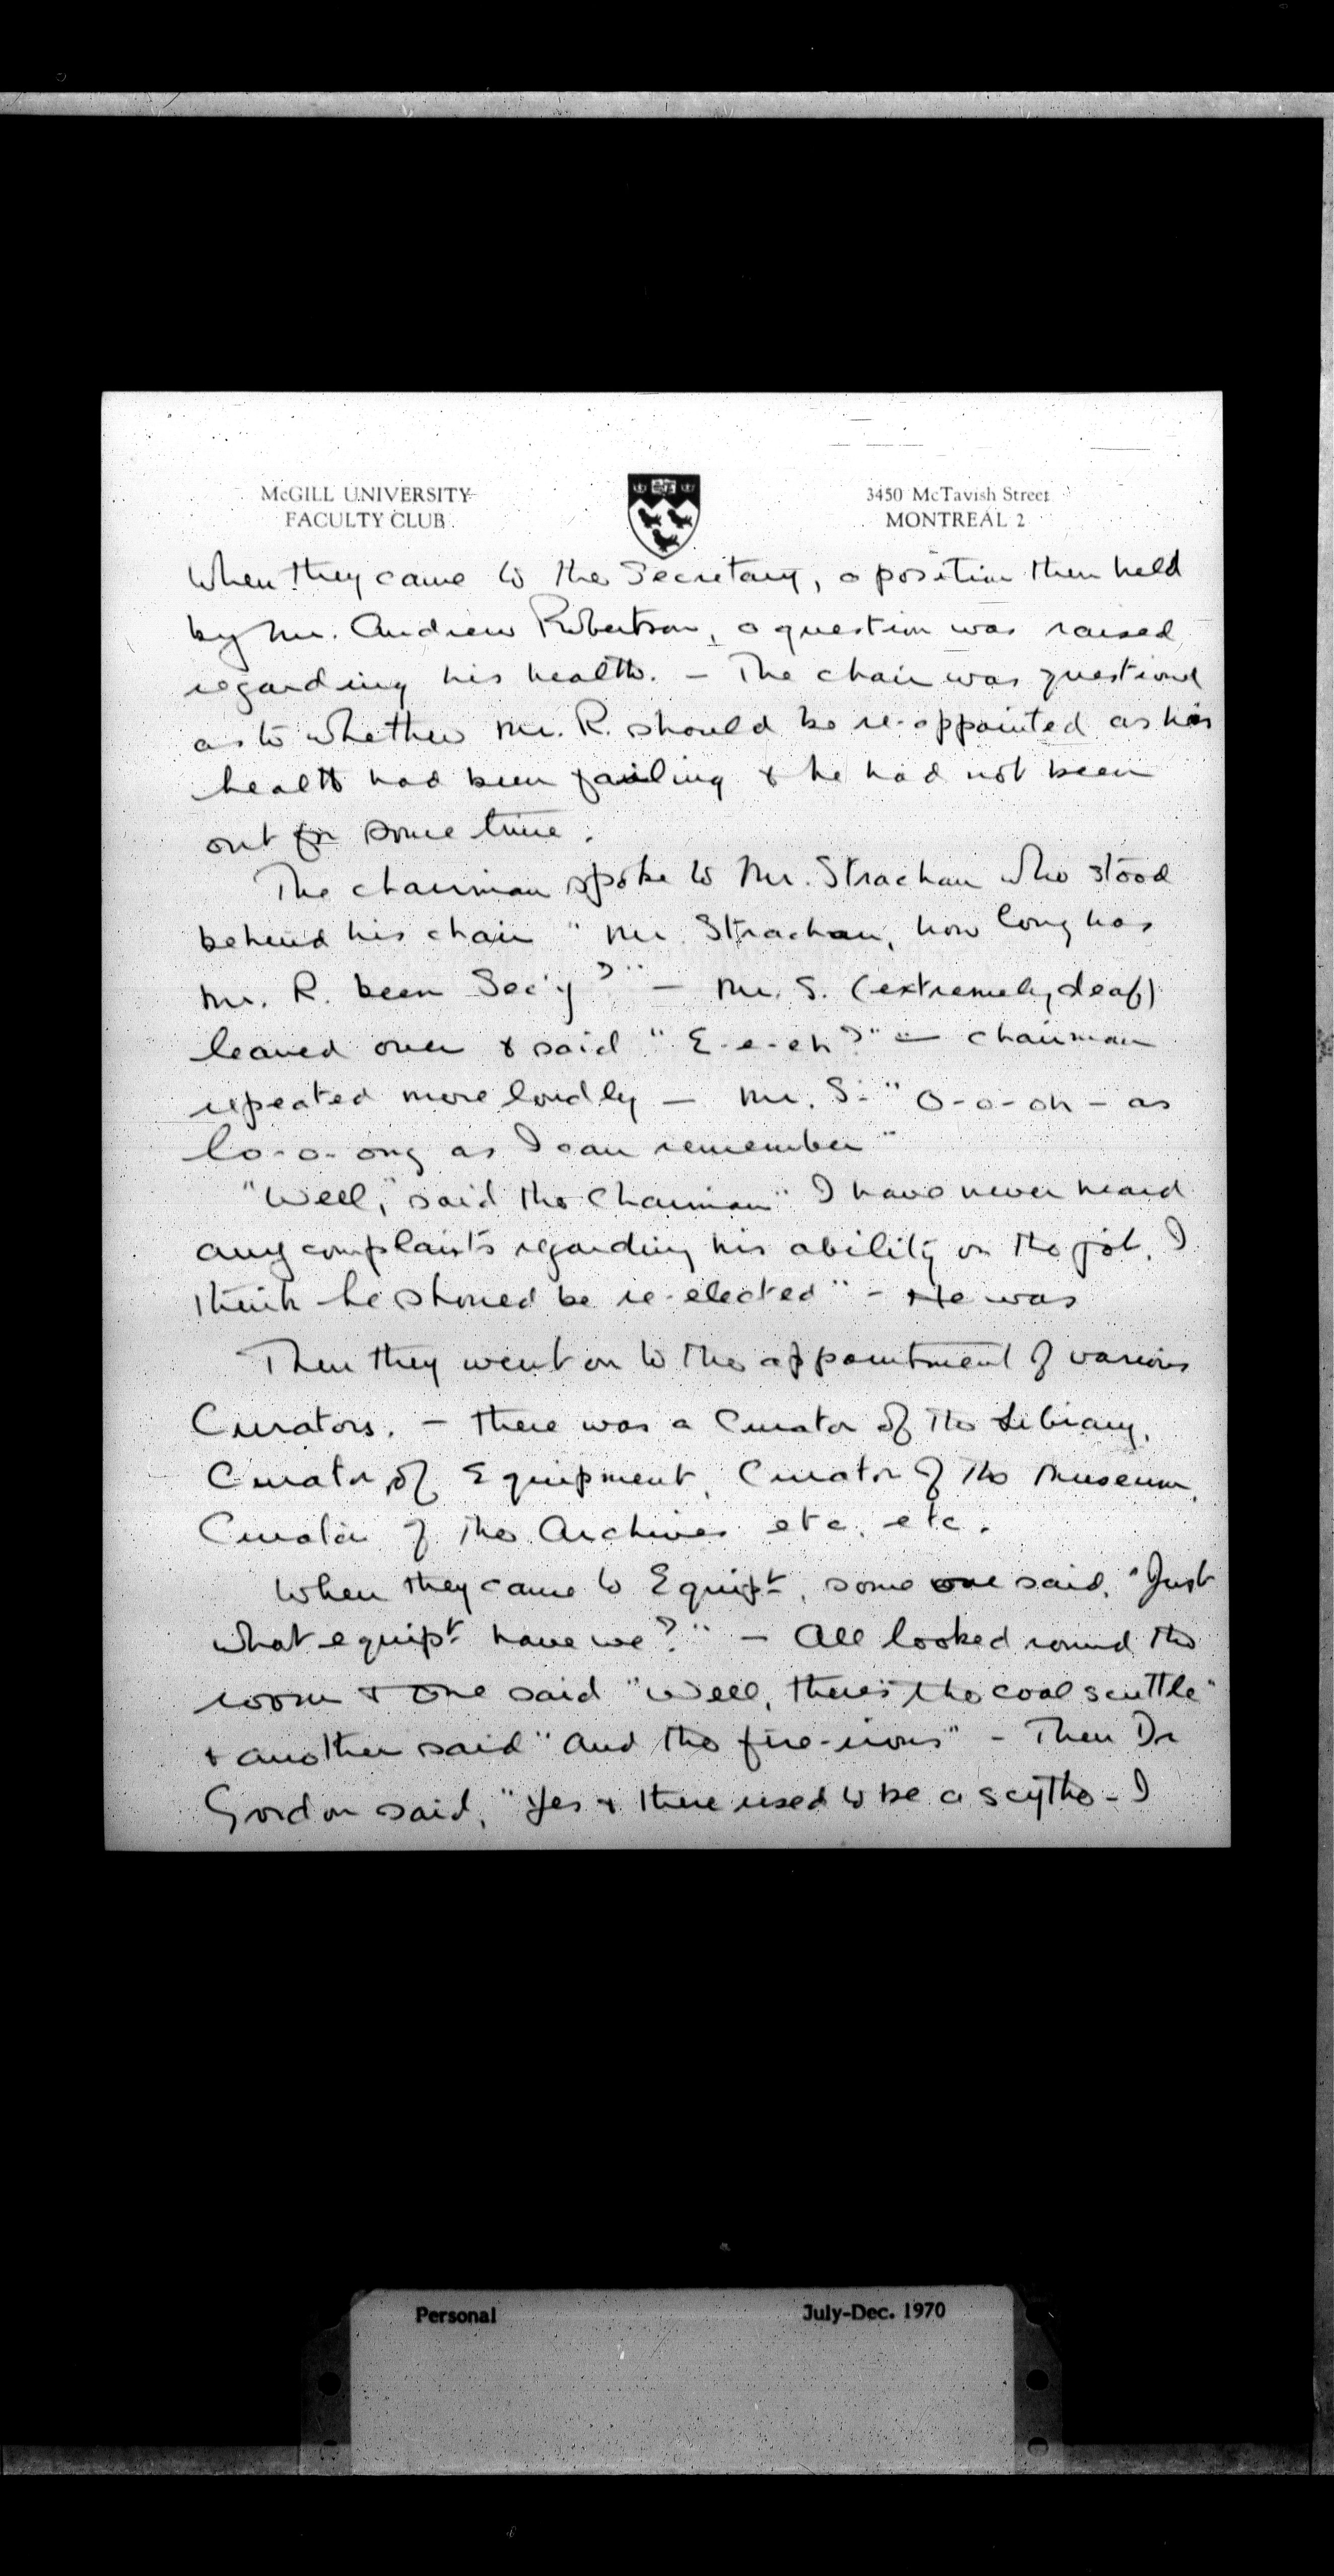 McGILL UNIVERSITY
FACULTY CLUB
3450 McTavish Street
MONTREAL 2
When they came to the Secretary, a position then held
by Mr. Andrew Robertson, a question was raised
regarding his health. - The chair was questioned
as to whether Mr. R. should be re-appointed as his
health had been failing & he had not been
out for some time.
The chairman spoke to Mr. Strachan who stood
behind his chair "Mr. Strachan, how long has
Mr. R. been Sec'y?" - Mr. S. (extremely deaf)
leaned over & said "E-e-eh?" - Chairman
repeated more loudly - Mr. S: "O-o-oh - as
lo-o-ong as I can remember"
"Well," said the Chairman "I have never heard
any complaints regarding his ability on the job, I
think he should be re-elected" - He was
Then they went on to the appointment of various
Curators. - there was a Curator of the Library,
Curator of Equipment, Curator of the Museum,
Curator of the Archives etc. etc.
When they came to Equipt, some one said, "Just
what equipt have we?" - All looked round the
room & one said "Well, there's the coal scuttle"
& another said "and the fire-irons" - Then Dr
Gordon said, "Yes & there used to be a scythe - I
Personal
July-Dec. 1970